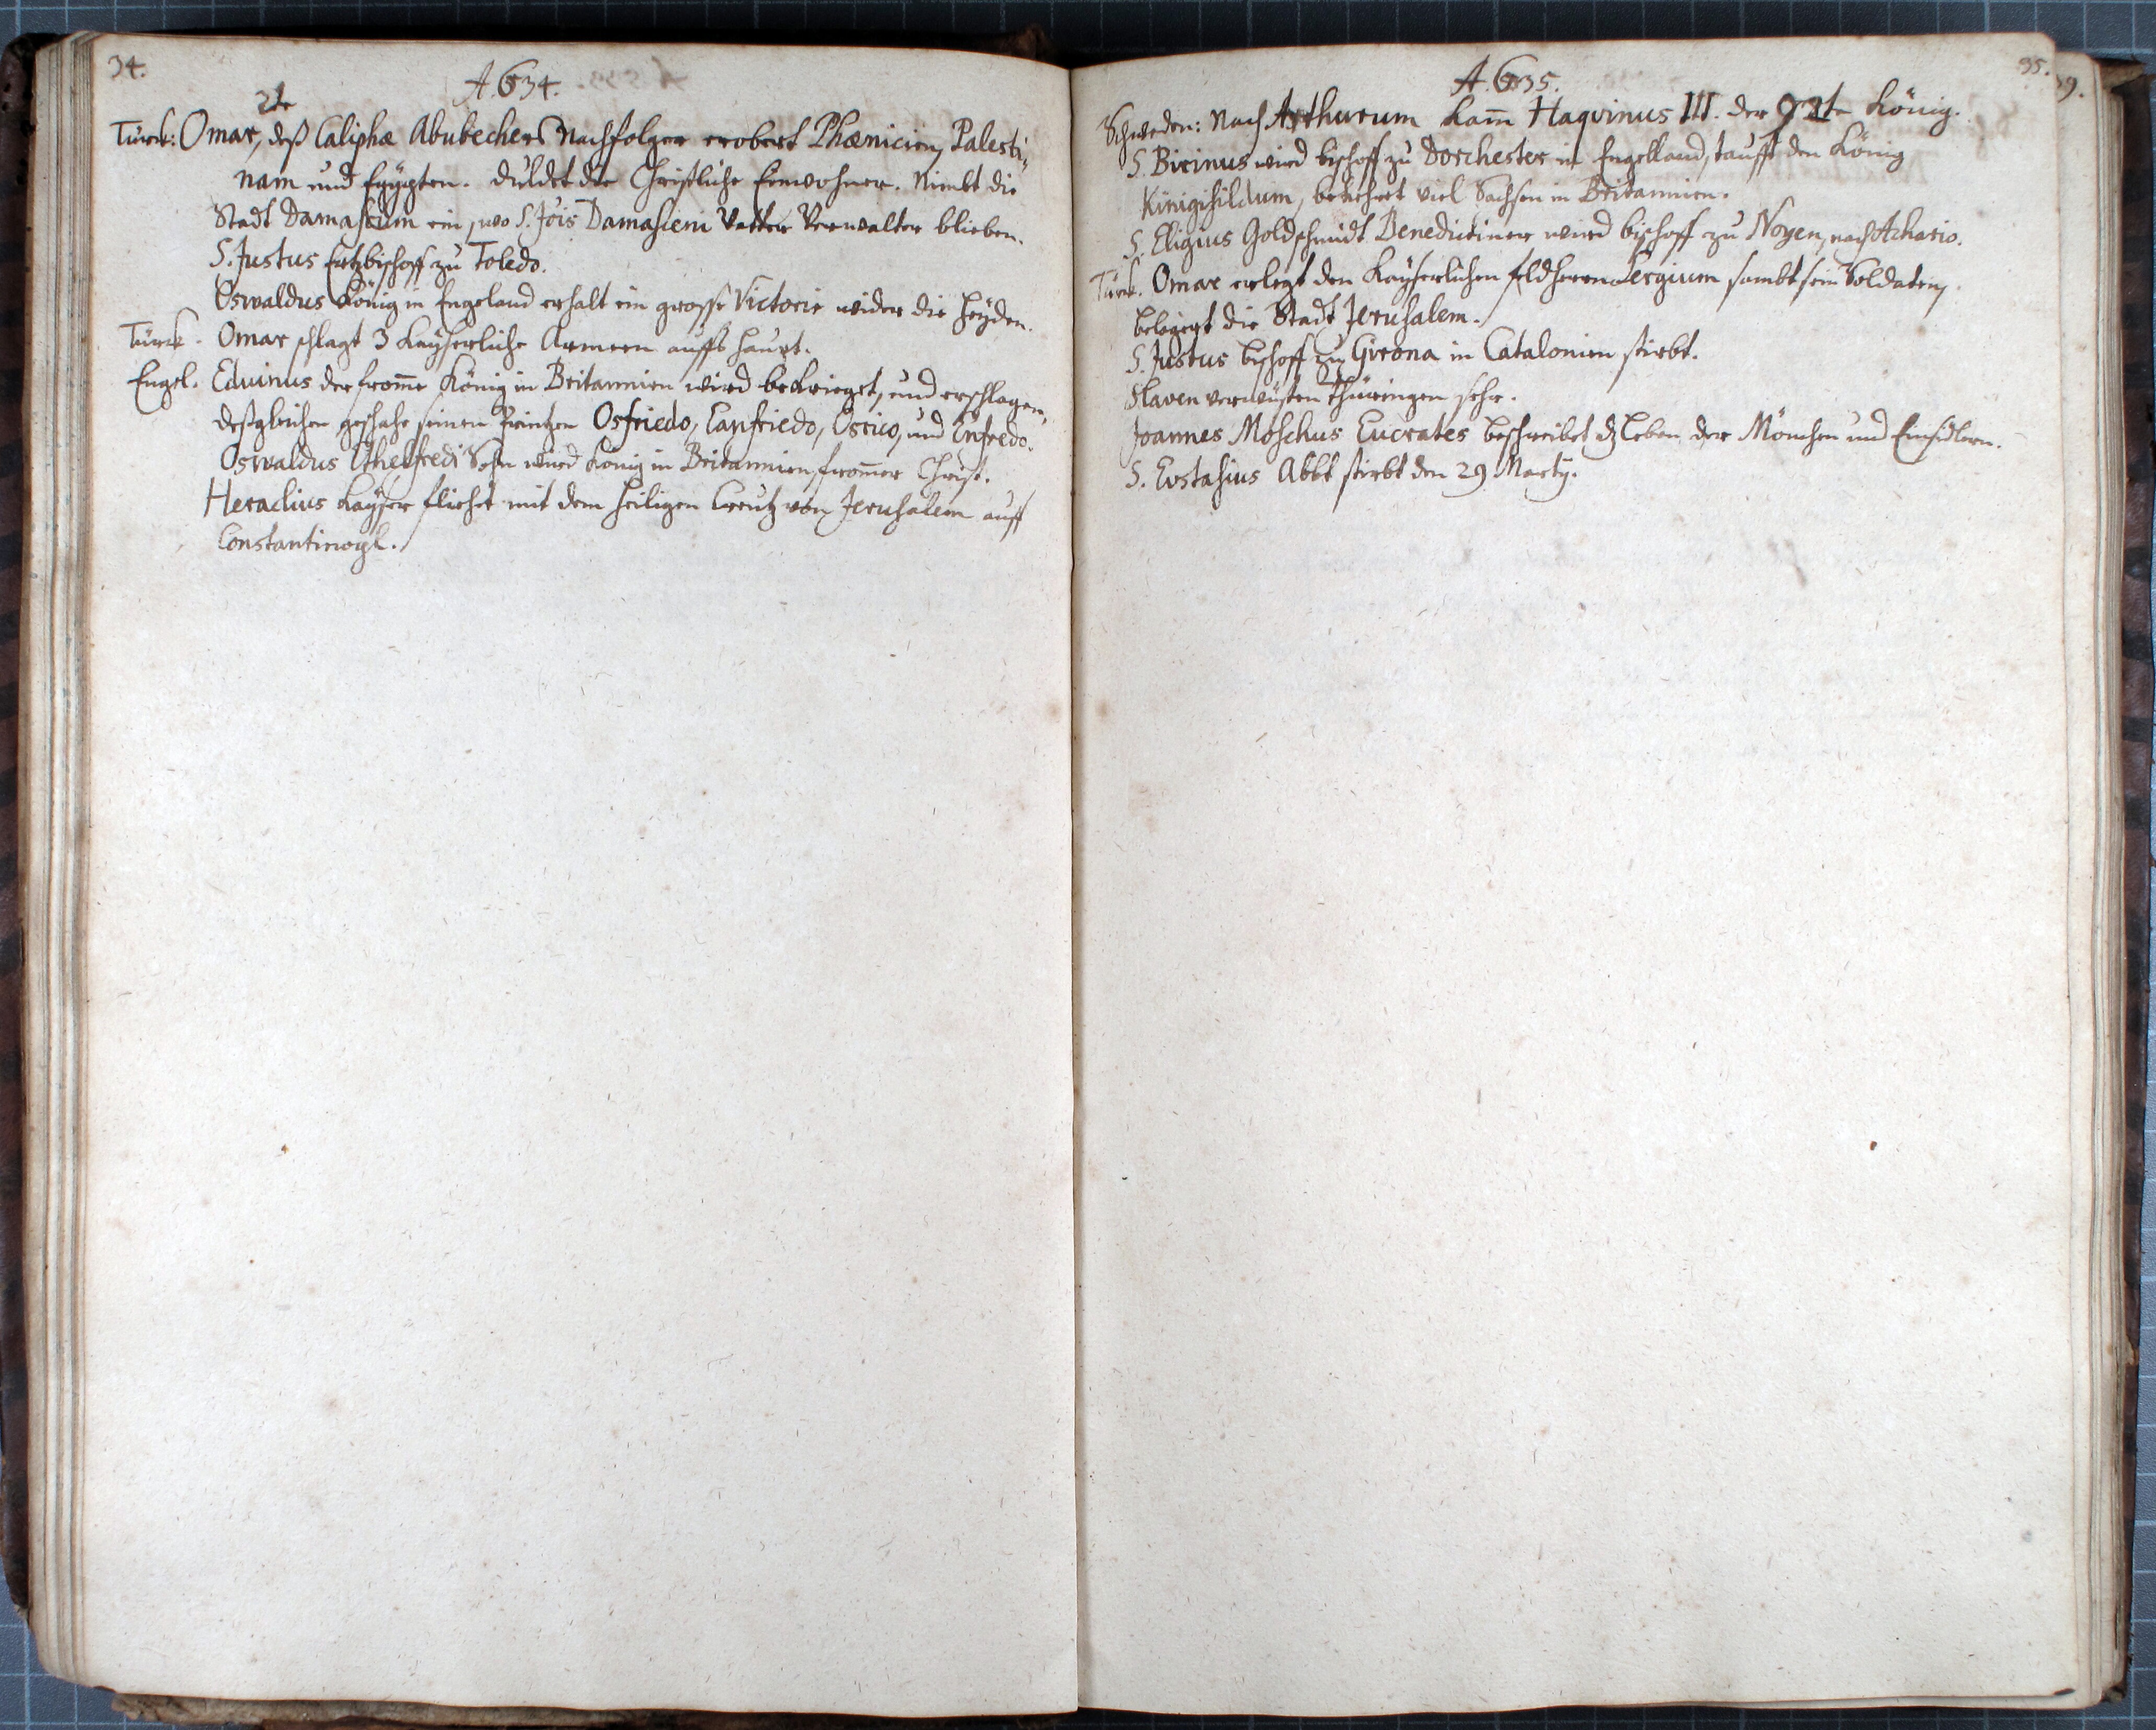 34.
A. 634.
2te
Türck: Omar, deß Caliphæ Abubechers Nachfolger erobert Phœnicien, Palesti„
nam und Egypten. duldet die Christliche Einwohner. Nimbt die
Stadt Damascum ein, wo S. Jõis Damasceni Vatter Verwalter blieben.
S. Justus Ertzbischoff zu Toledo.
Oswaldus König in Engeland erhalt ein grosse Victorie wider die Heyden.
Türck. Omar schlagt 3 Kayserliche Armeen auffs haupt.
Engel. Eduinus der from̃e König in Britannien wird bekrieget, und erschlagen,
deßgleichen geschahe seinen Printzen Osfriedo, Eanfriedo, Osrico, und Enfredo.
Oswaldus Ethelfredi Sohn wird König in Britannien, from̃er Christ.
Heraclius Kayser fliehet mit dem heiligen Creutz von Jerusalem auff
Constantinopl.
35.
39.
A. 635.
Schweden: Nach Arthurum kam̃ Haqvinus III. der 92te König.
S. Birinus wird bischoff zu Dorchester in Engelland, taufft den König
Kinigisildum, bekehret viel Sachsen in Britannien.
S. Eligius Goldschmidt Benedictiner wird bischoff zu Noyen, nach Achario.
Türck. Omar erlegt den Kayserlichen feldherrn Sergium sambt sein Soldaten,
belegert die Stadt Jerusalem.
S. Justus bischoff zu Girona in Catalonien stirbt.
Slaven verwüsten Thüringen sehr.
Joannes Moschus Eucrates beschreibet dz Leben der Mönchen und Einsidlern.
S. Eustasius Abbt stirbt den 29 Martij.